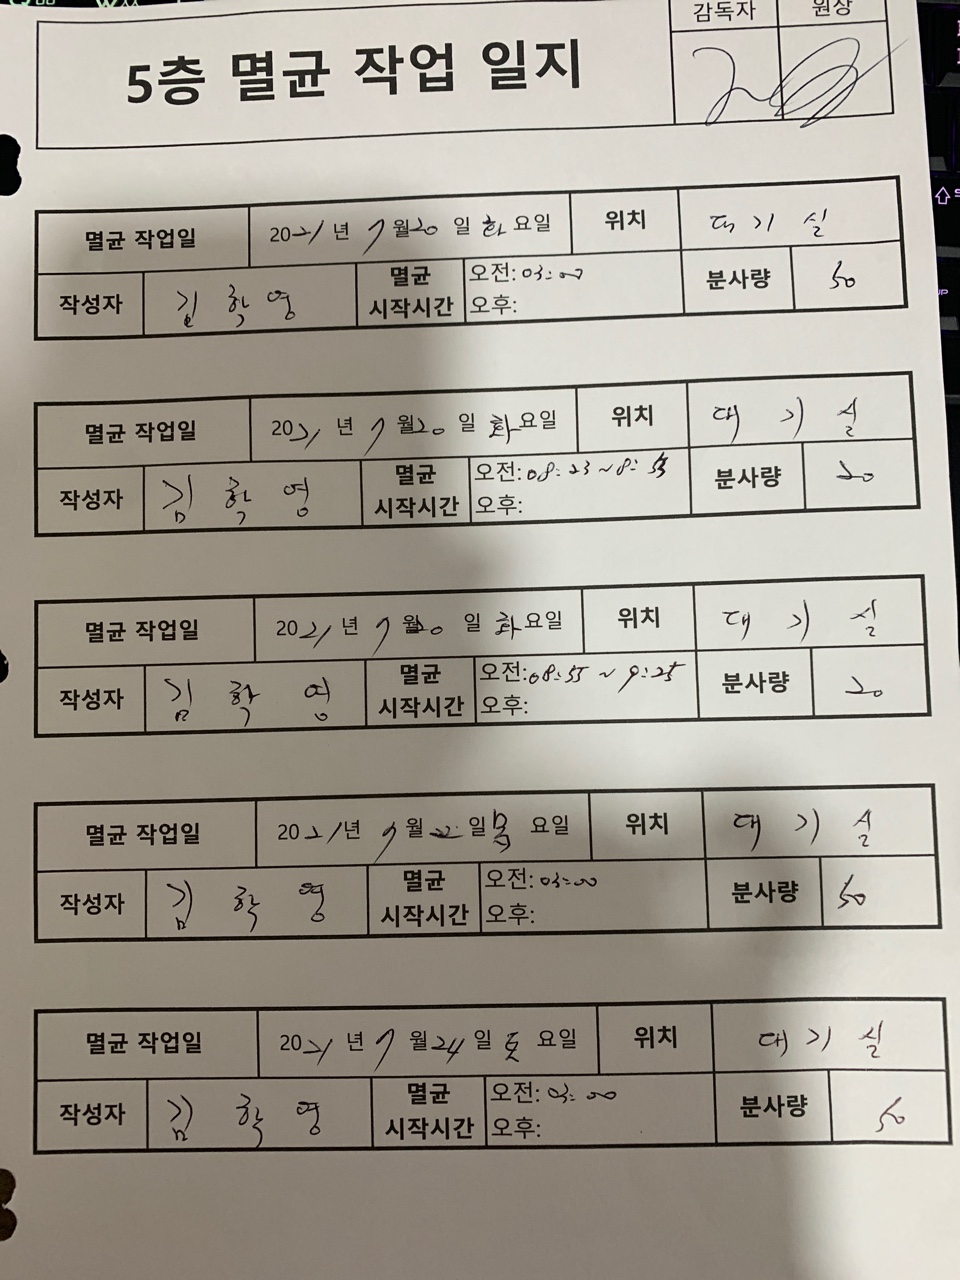 감독자 원장
5층 멸균 작업 일지
멸균 작업일 2021년 7월 20일 화요일 위치 대기실
작성자 김학영 멸균 시작시간 오전: 03:00 분사량 50
오후:
멸균 작업일 2021년 7월 20일 화요일 위치 대기실
작성자 김학영 멸균 시작시간 오전: 08:23 ~ 8:53 분사량 20
오후:
멸균 작업일 2021년 7월 20일 화요일 위치 대기실
작성자 김학영 멸균 시작시간 오전: 08:55 ~ 9:25 분사량 20
오후:
멸균 작업일 2021년 7월 22일 목요일 위치 대기실
작성자 김학영 멸균 시작시간 오전: 03:00 분사량 50
오후:
멸균 작업일 2021년 7월 24일 토요일 위치 대기실
작성자 김학영 멸균 시작시간 오전: 03:00 분사량 50
오후: